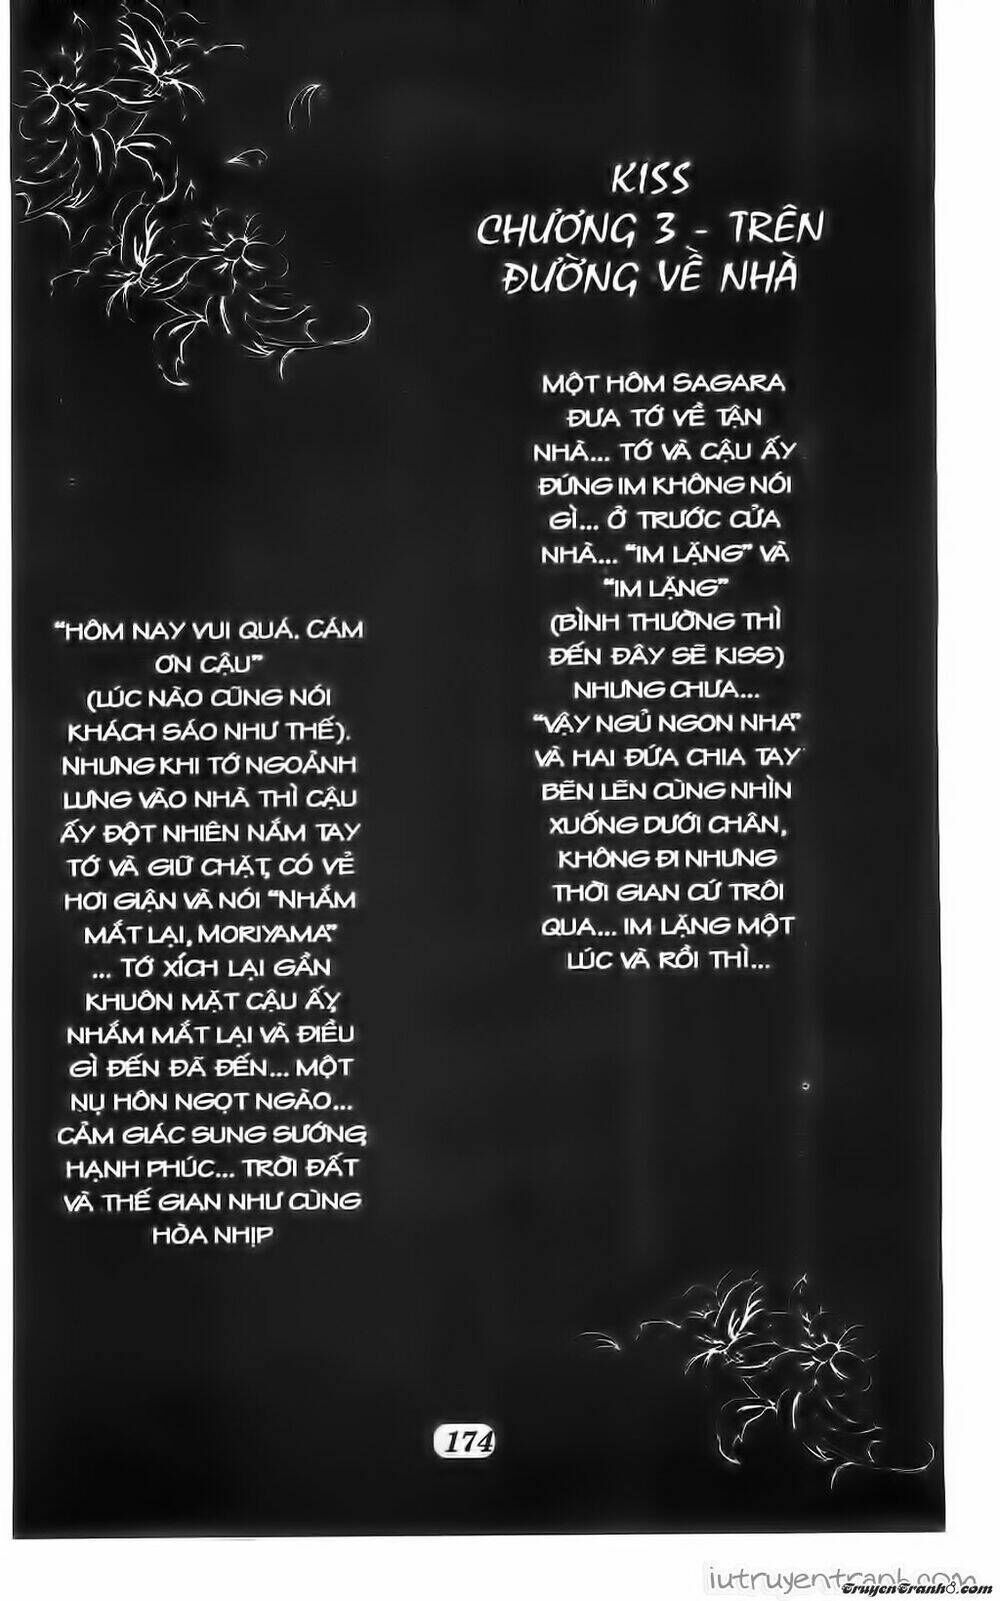 KISS
CHƯƠNG 3 - TRÊN
ĐƯỜNG VỀ NHÀ
MỘT HÔM SAGARA
ĐƯA TỚ VỀ TẬN
NHÀ... TỚ VÀ CẬU ẤY
ĐỨNG IM KHÔNG NÓI
GÌ... Ở TRƯỚC CỬA
NHÀ... “IM LẶNG” VÀ
“IM LẶNG”
(BÌNH THƯỜNG THÌ
ĐẾN ĐÂY SẼ KISS)
NHƯNG CHƯA...
“VẬY NGỦ NGON NHA”
VÀ HAI ĐỨA CHIA TAY
BẼN LẼN CÙNG NHÌN
XUỐNG DƯỚI CHÂN,
KHÔNG ĐI NHƯNG
THỜI GIAN CỨ TRÔI
QUA... IM LẶNG MỘT
LÚC VÀ RỒI THÌ...
“HÔM NAY VUI QUÁ. CÁM
ƠN CẬU”
(LÚC NÀO CŨNG NÓI
KHÁCH SÁO NHƯ THẾ).
NHƯNG KHI TỚ NGOẢNH
LƯNG VÀO NHÀ THÌ CẬU
ẤY ĐỘT NHIÊN NẮM TAY
TỚ VÀ GIỮ CHẶT, CÓ VẺ
HƠI GIẬN VÀ NÓI “NHẮM
MẮT LẠI, MORIYAMA”
... TỚ XÍCH LẠI GẦN
KHUÔN MẶT CẬU ẤY,
NHẮM MẮT LẠI VÀ ĐIỀU
GÌ ĐẾN ĐÃ ĐẾN... MỘT
NỤ HÔN NGỌT NGÀO...
CẢM GIÁC SUNG SƯỚNG,
HẠNH PHÚC... TRỜI ĐẤT
VÀ THẾ GIAN NHƯ CÙNG
HÒA NHỊP
174
iutruyentranh.com
TruyenTranh8.com